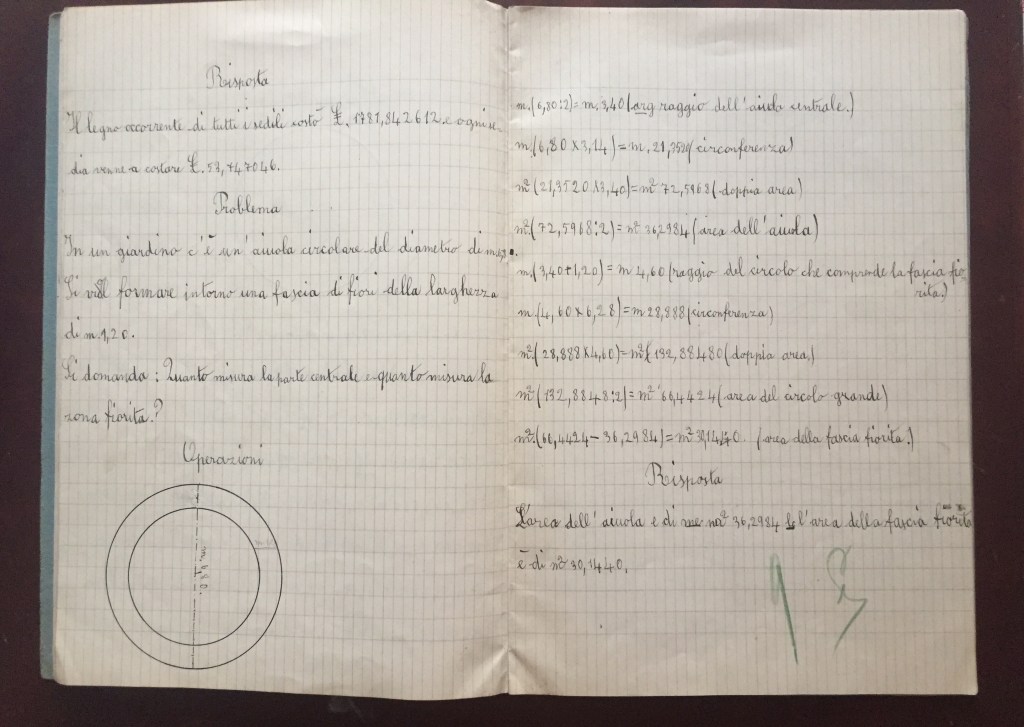 Risposta
Il legno occorrente di tutti i sedili costò £. 1781,842612 e ogni se-
dia venne a costare £. 53,747046.
Problema
In un giardino c'è un'aiuola circolare del diametro di m.
Si vuol formare intorno una fascia di fiori della larghezza
di m. 1,20.
Si domanda: Quanto misura la parte centrale e quanto misura la
zona fiorita?
Operazioni
m. 6,80.
m. (6,80:2) = m. 3,40 (raggio dell'aiuola centrale.)
m. (6,80 x 3,14) = m. 21,3520 (circonferenza)
m² (21,3520 x 3,40) = m² 72,5968 (doppia area)
m² (72,5968:2) = m² 36,2984 (area dell'aiuola)
m. (3,40+1,20) = m 4,60 (raggio del circolo che comprende la fascia fio-
rita.)
m. (4,60 x 6,28) = m 28,888 (circonferenza)
m² (28,888 x 4,60) = m² 132,88480 (doppia area.)
m² (132,8848:2) = m² 66,4424 (area del circolo grande)
m² (66,4424 - 36,2984) = m² 30,1440. (area della fascia fiorita.)
Risposta
L'area dell'aiuola e di m² 36,2984 e l'area della fascia fiorita
è di m² 30,1440.